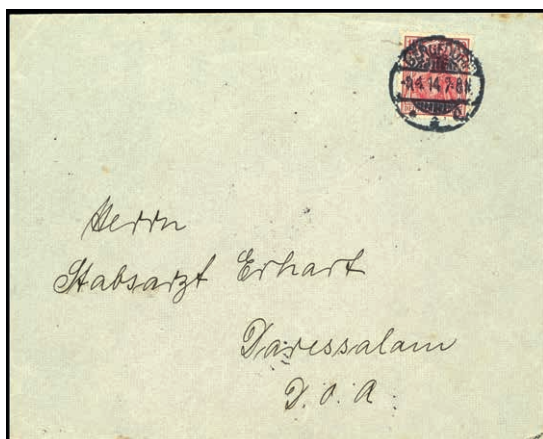 -9.4.14.7-8N
Herrn
Stabsarzt Erhart
Daressalam
D. O. A.